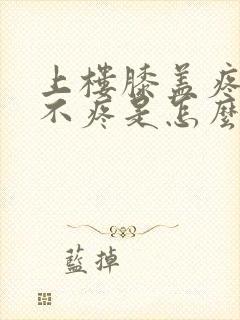 上樓膝盖疼
不疼是怎麽
藍掉